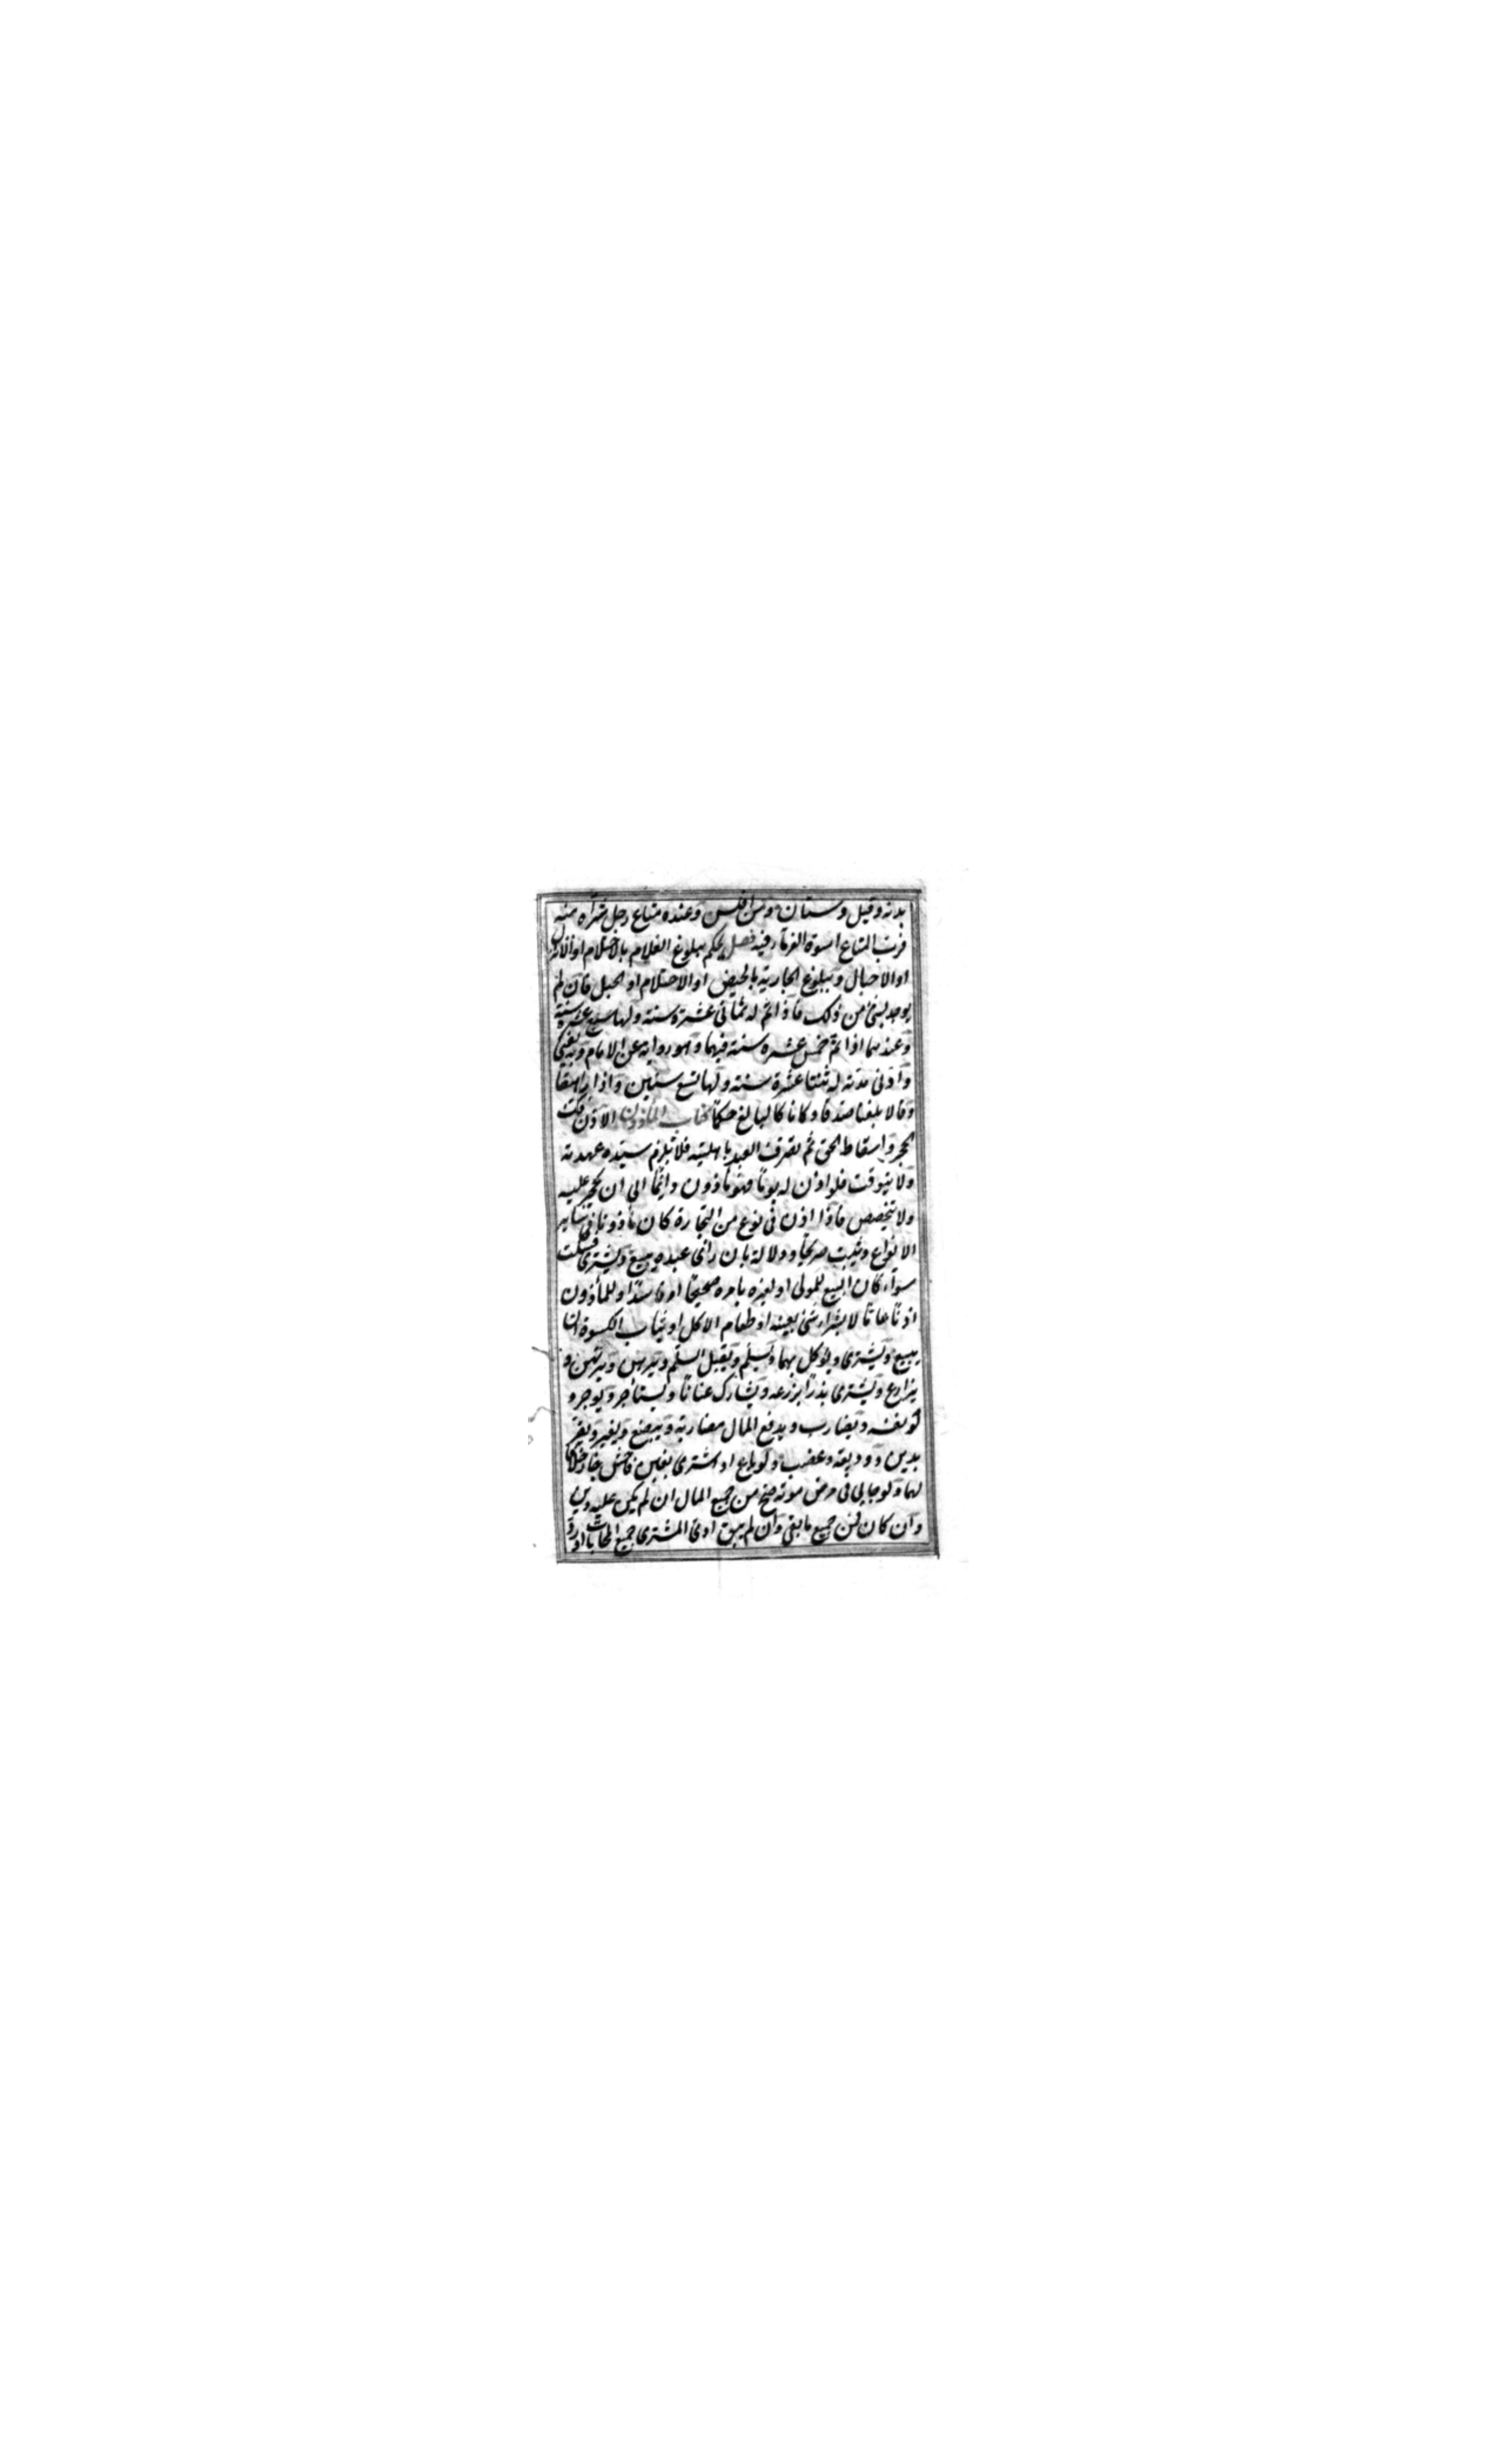 بدنه وقيل دستان ومن افلس وعنده متاع رجل شراه منه
فرب المتاع اسوة الغرماء فيه فصل يحكم ببلوغ الغلام بالاحتلام او الانزال
او الاحبال وببلوغ الجارية بالحيض او الاحتلام او الحبل فان لم
يوجد شئ من ذلك فاذا تم له ثمانى عشرة سنة ولها سبع عشرة سنة
وعندهما اذا تم خمس عشرة سنة فيهما وهو رواية عن الامام وبه يفتى
وادنى مدته له ثنتا عشرة سنة ولها تسع سنين واذا راهقا
وقالا بلغنا صدقا وكانا كالبالغ حكما كتاب المأذون الاذن فك
الحجر واسقاط الحق ثم يتصرف العبد باهليته فلا تلزم سيده عهدته
ولا يتوقت فلو اذن له يوما فهو مأذون دائما الى ان يحجر عليه
ولا يتخصص فاذا اذن فى نوع من التجارة كان مأذونا فى ساير
الانواع ويثبت صريحا ودلالة بان رأى عبده يبيع ويشترى فسكت
سواء كان البيع للمولى او لغيره بامره صحيحا او فاسدا وللمأذون
اذنا عاما لا بشراء شئ بعينه او طعام الاكل او ثياب الكسوة ان
يبيع ويشترى ويوكل بهما ويسلم ويقبل السلم ويرهن ويرتهن و
يزارع ويشترى بذرا يزرعه ويشارك عنانا ويستأجر ويوجر و
لو نفسه ويضارب ويدفع المال مضاربة ويبضع ويعير ويقر
بدين ووديعة وغصب ولو باع او اشترى بغبن فاحش جاز خلافا
لهما ولو حابى فى مرض موته صح من جميع المال ان لم يكن عليه دين
وان كان فمن جميع ما بقى وان لم يبق ادى المشترى جميع المحاباة او رد